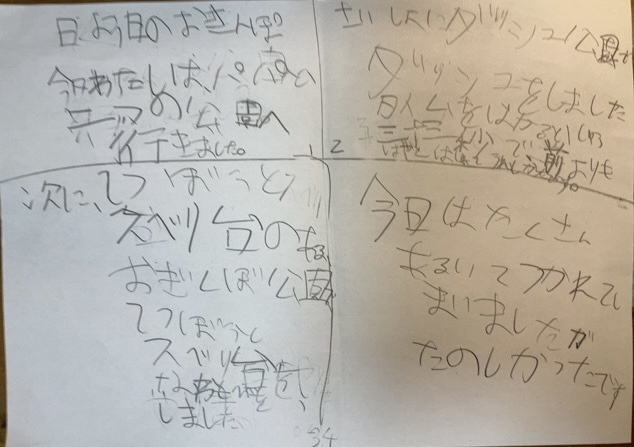 日よう日のおさんぽ
今日わたしは、パパと
三つの公園へ
行きました。
1
2
さいしょにダッシュ公園で
ダッシュをしました
タイムをはかるといしわ
三十三秒で前よりも
次に、てつぼうと
スベリ台のある
おぎくぼ公園
てつぼうと
スベリ台を
しました
34
今日はたくさん
あるいてつかれてし
まいましたが
たのしかったです